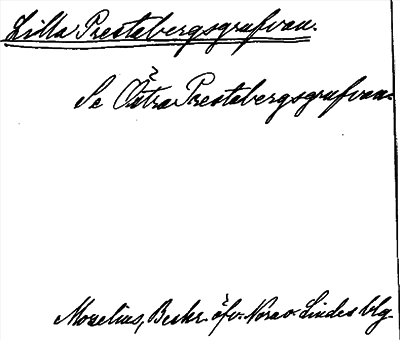 Lilla Prestabergsgrufvan.
Se Östra Prestabergsgrufvan.
Mozelius, Beskr. öfv. Nora o. Lindes blg.